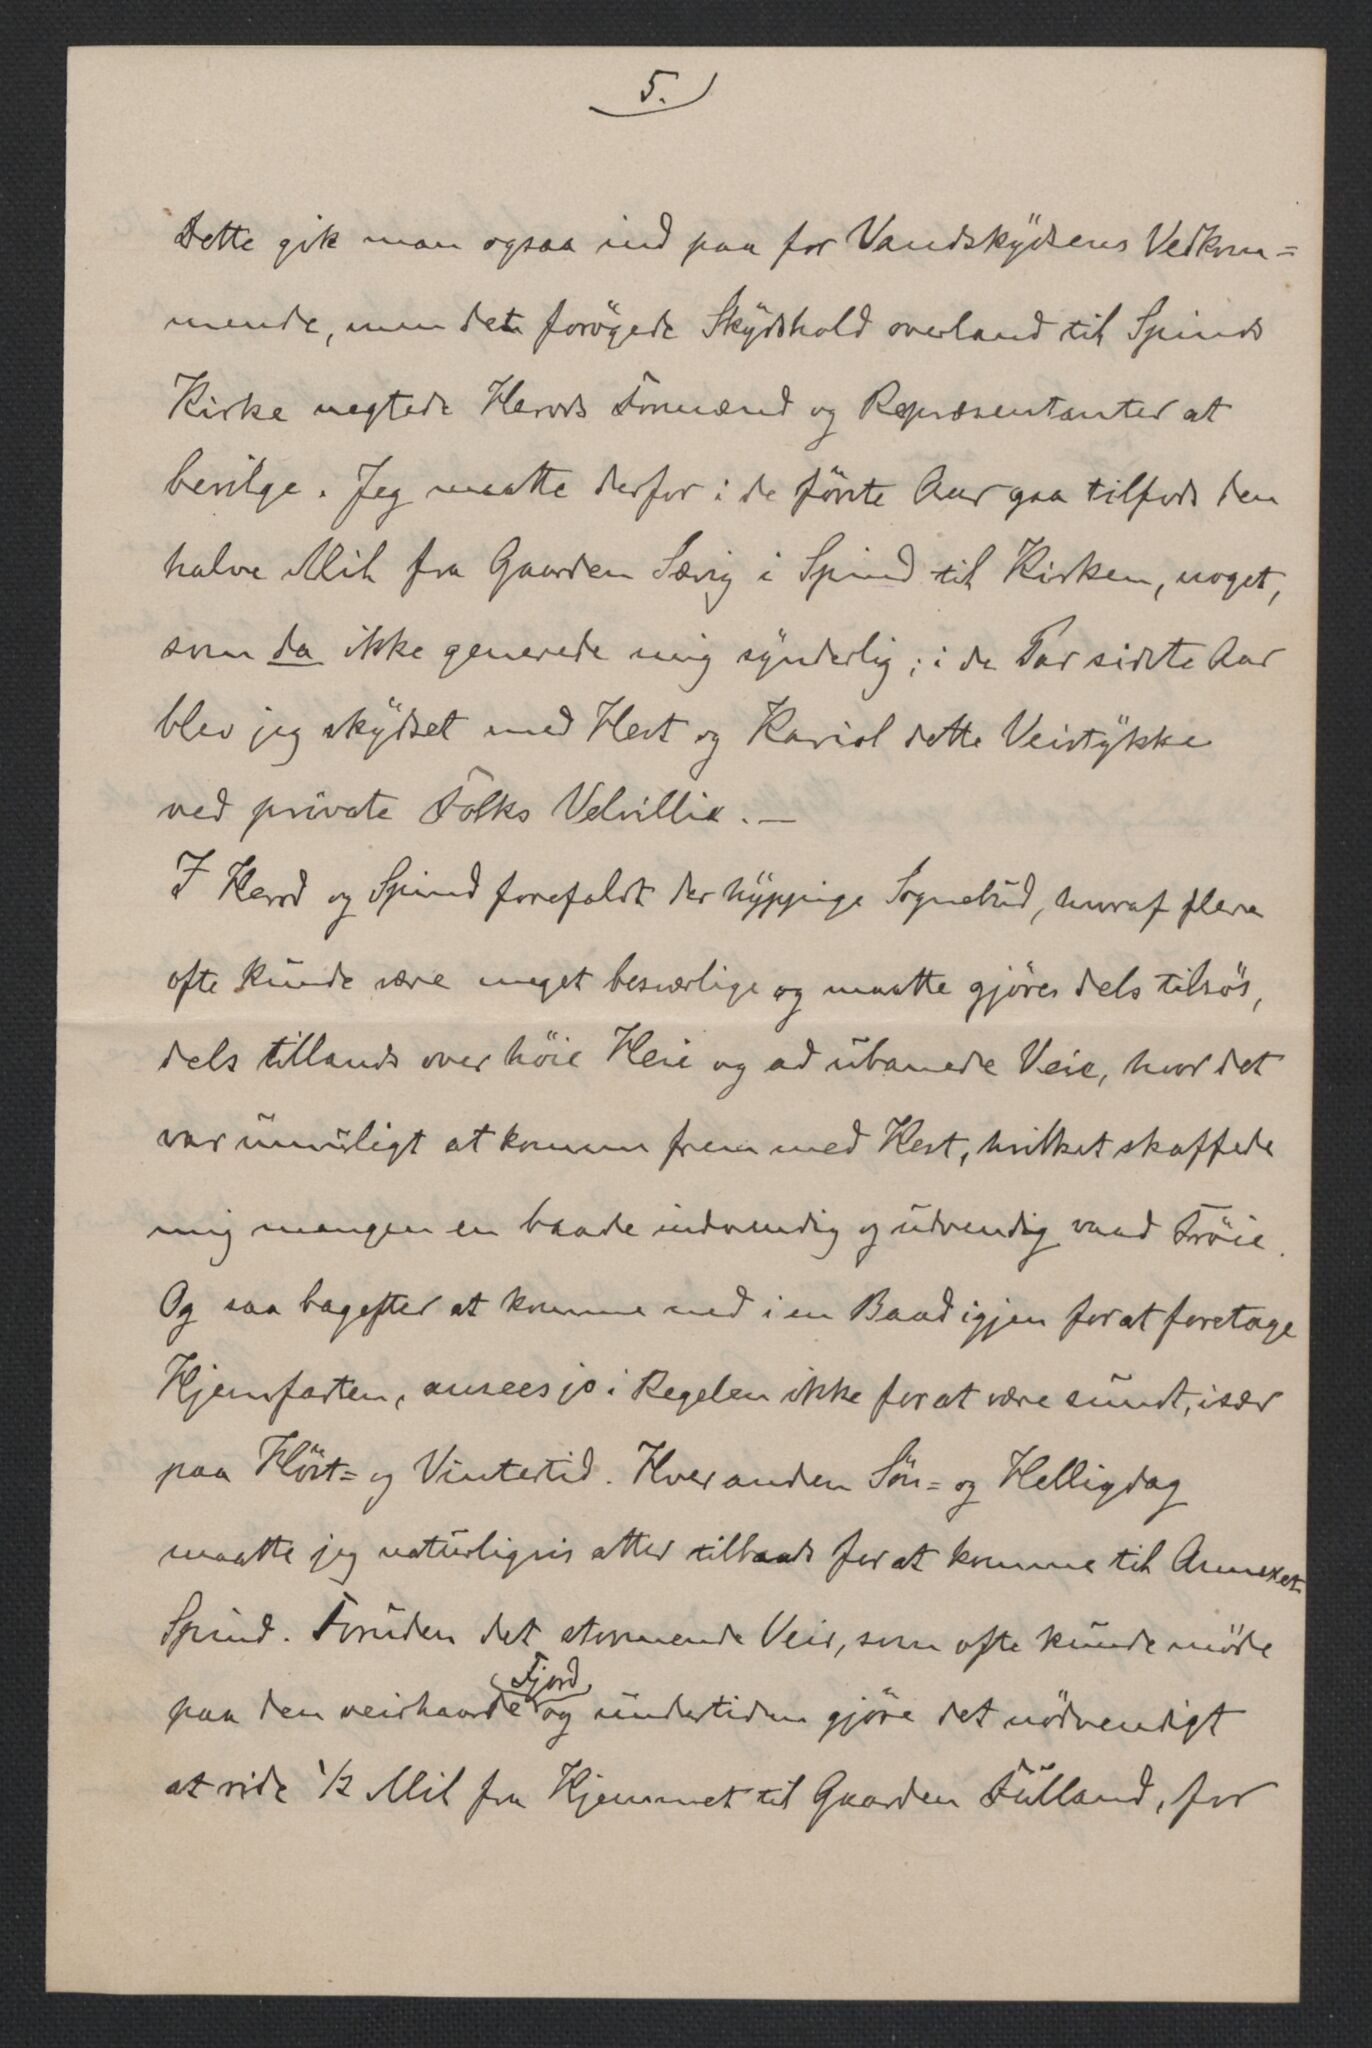 5.
Dette gik man ogsaa ind paa for Vandskydsens Vedkom=
mende, men det forøgede Skydshold overland til Spinds
Kirke negtede Herreds Formænd og Repræsentanter at
bevilge. Jeg maatte derfor i de første Aar gaa tilfods den
halve Mil fra Gaarden Sævig i Spind til Kirken, noget,
som da ikke generede mig synderlig; i de Par sidste Aar
blev jeg skydset med Hest og Kariol dette Veistykke
ved private Folks Velvillie. —
I Herred og Spind forefaldt der hyppige Sognebud, hvoraf flere
ofte kunde være meget besværlige og maatte gjøres dels tilsøs,
dels tillands over høie Heie og ad ubanede Veie, hvor det
var umuligt at komme frem med Hest, hvilket skaffede
mig mangen en baade indvendig og udvendig vaad Trøie.
Og saa bagefter at komme ned i en Baad igjen for at foretage
Hjemfarten, ansees jo i Regelen ikke for at være sundt, især
paa Høst= og Vintertid. Hver anden Søn= og Helligdag
maatte jeg naturligvis atter tilbaads for at komme til Annexet
Spind. Foruden det stormende Veir, som ofte kunde møde
paa den veirhaarde Fjord og undertiden gjøre det nødvendigt
at ride 1/2 Mil fra Hjemmet til Gaarden Fülland, for